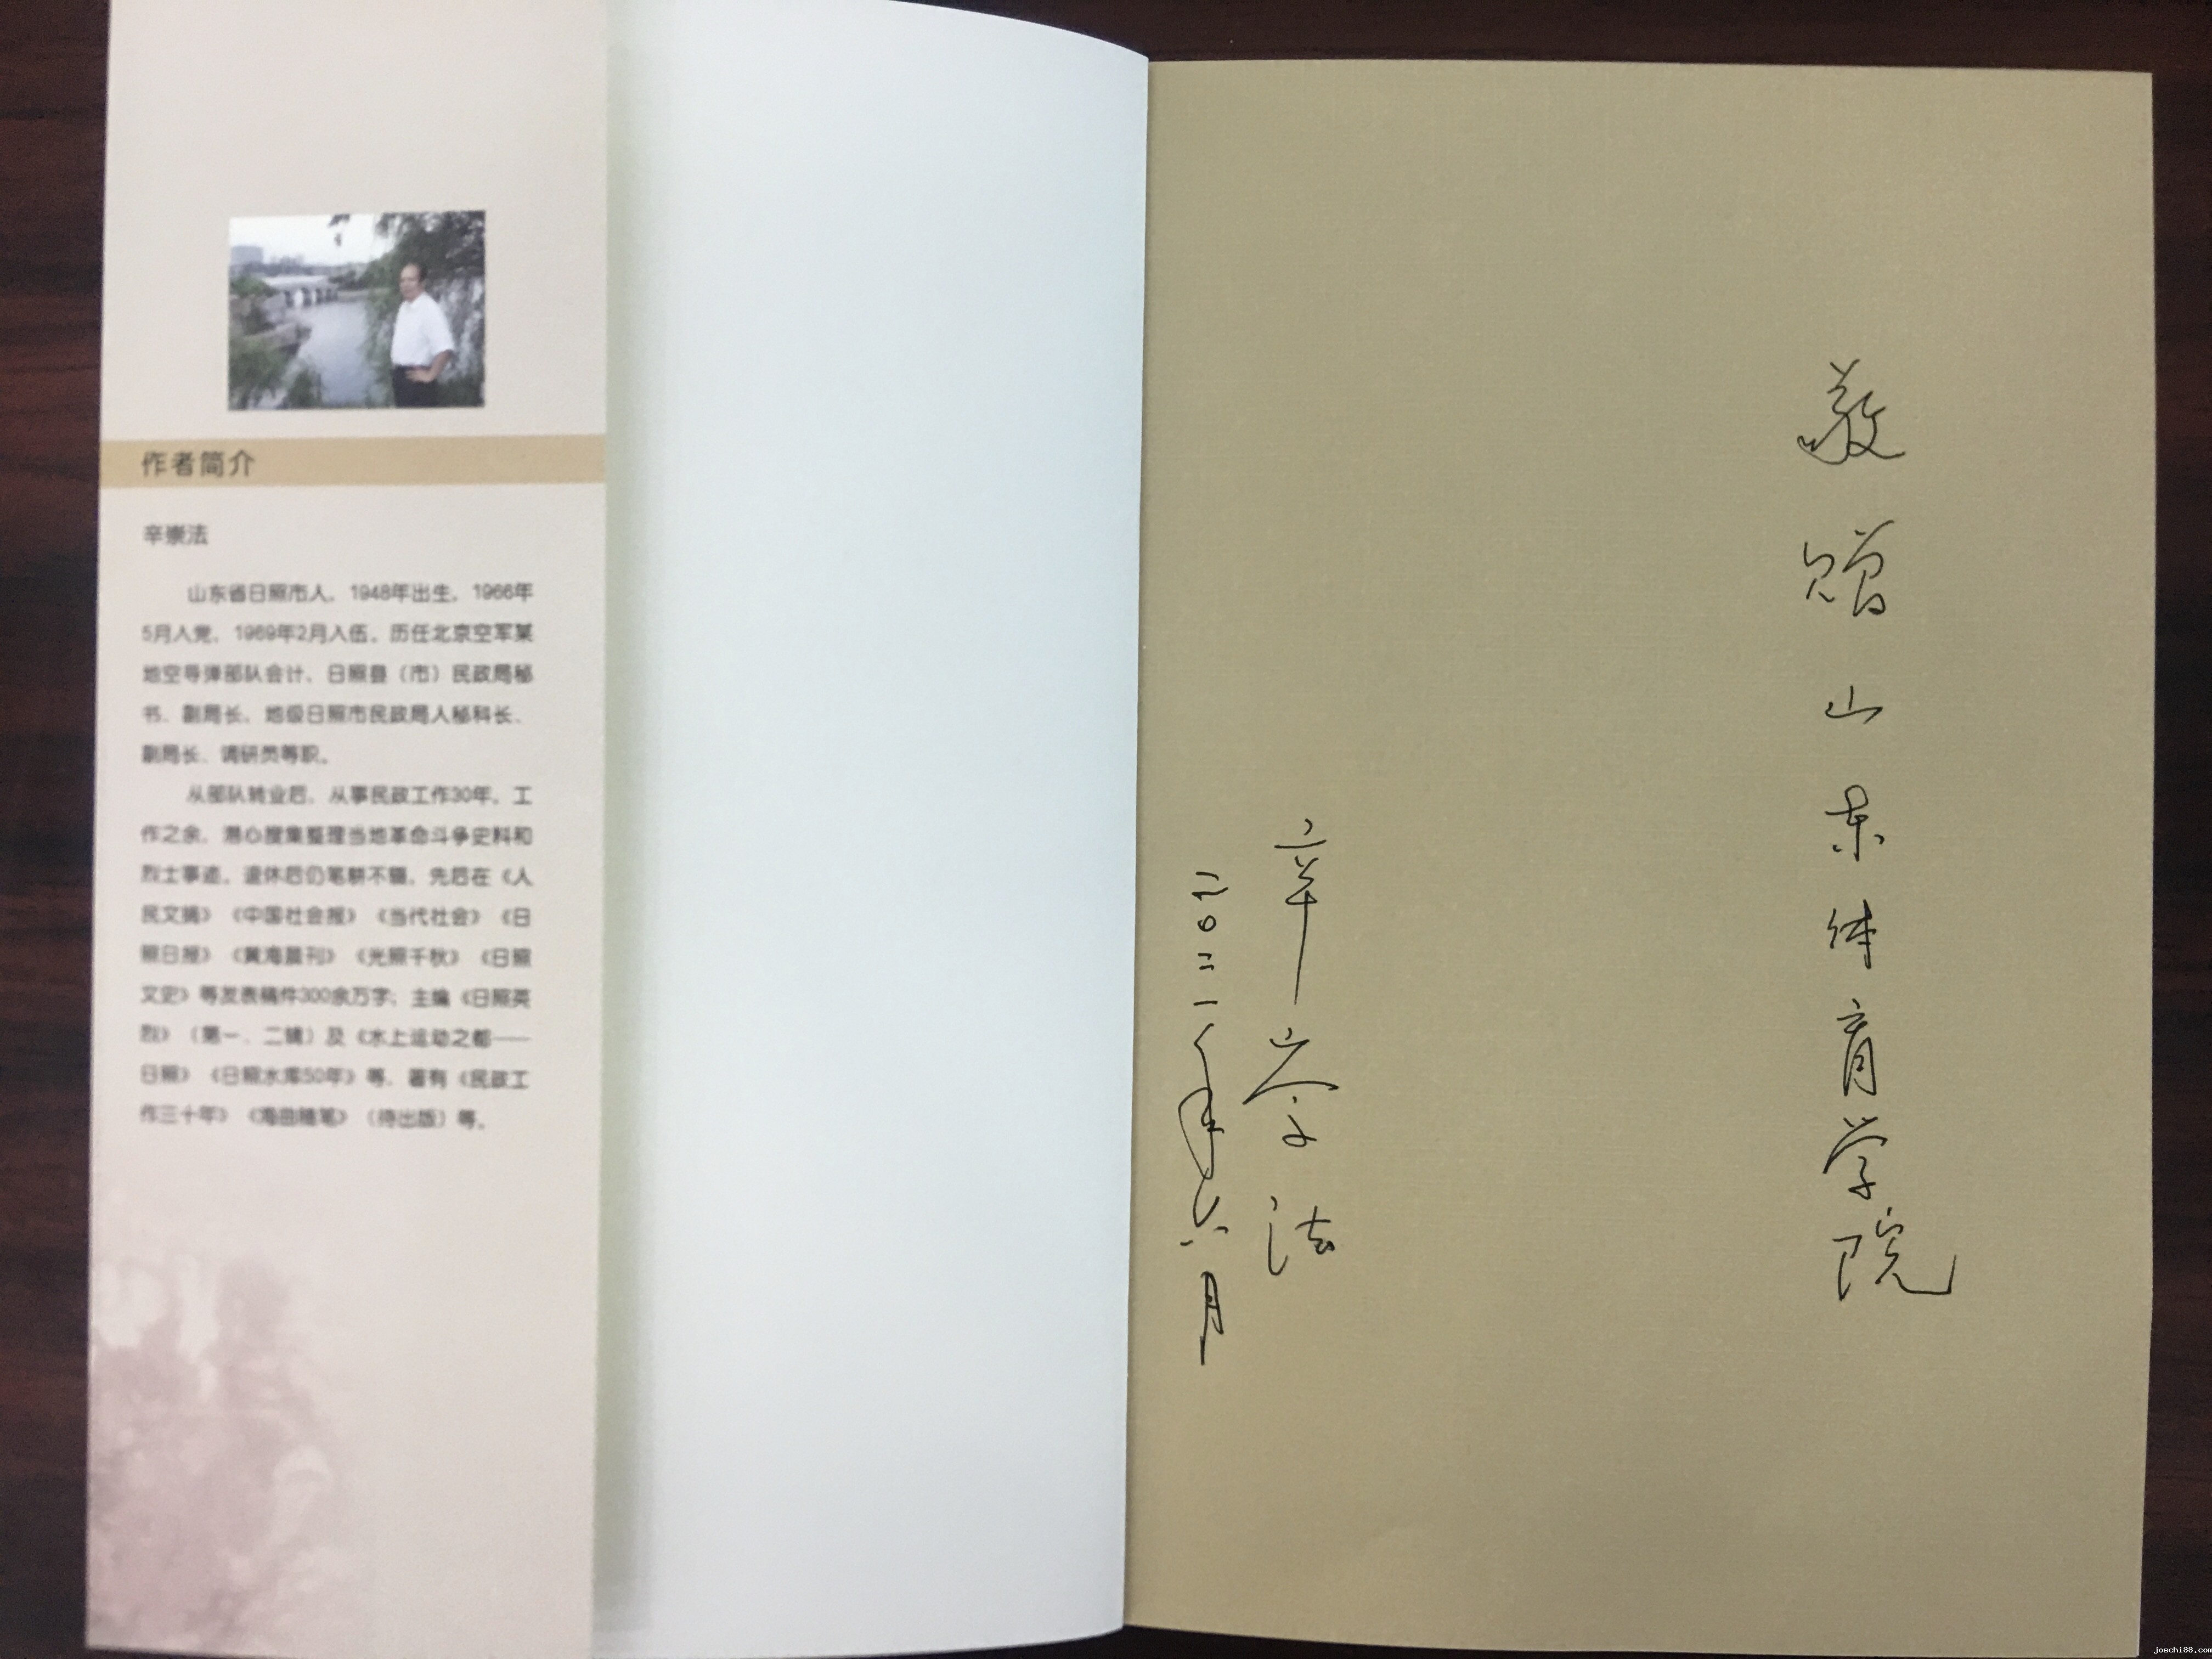 作者简介
辛崇法
山东省日照市人，1948年出生，1966年
5月入党，1969年2月入伍，历任北京空军某
地空导弹部队会计、日照县（市）民政局秘
书、副局长，地级日照市民政局人秘科长、
副局长、调研员等职。
从部队转业后，从事民政工作30年，工
作之余，潜心搜集整理当地革命斗争史料和
烈士事迹，退休后仍笔耕不辍，先后在《人
民文摘》《中国社会报》《当代社会》《日
照日报》《黄海晨刊》《光照千秋》《日照
文史》等发表稿件300余万字；主编《日照英
烈》（第一、二辑）及《水上运动之都——
日照》《日照水库50年》等，著有《民政工
作三十年》《海曲随笔》（待出版）等。
敬赠山东体育学院
辛崇法
二〇二一年六月
joschi88.com